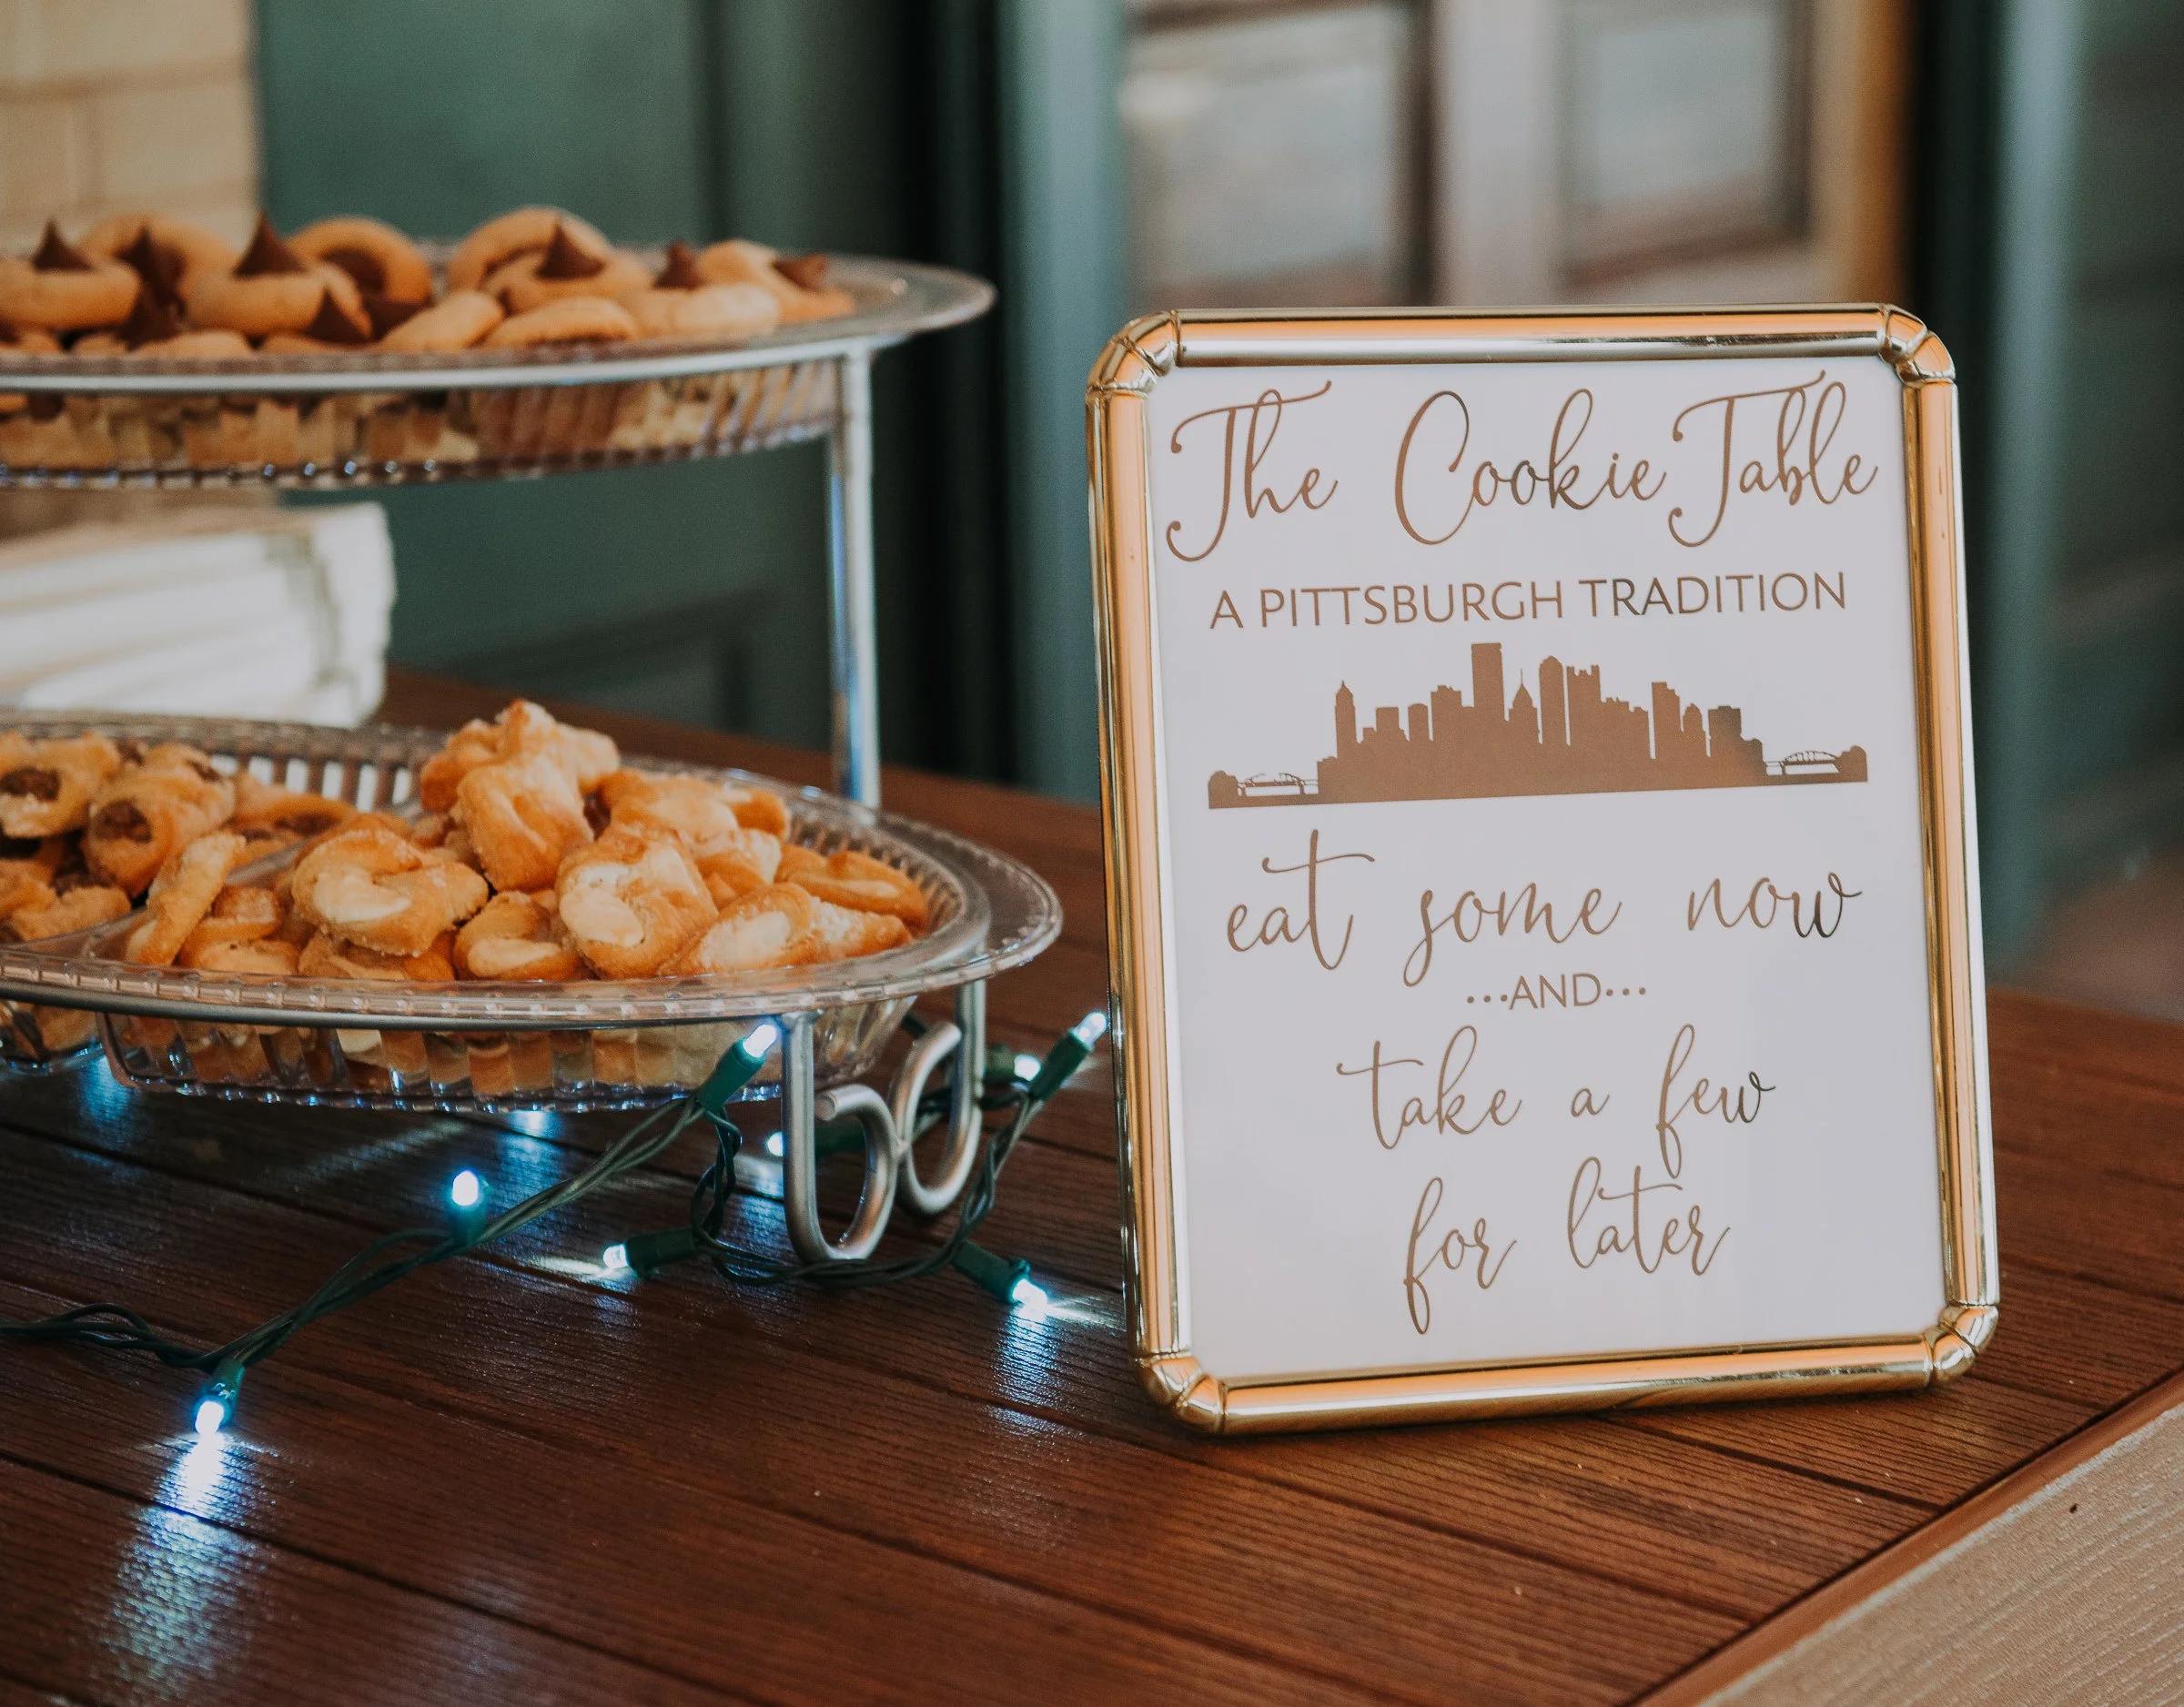 The Cookie Table
A PITTSBURGH TRADITION
eat some now
...AND...
take a few
for later